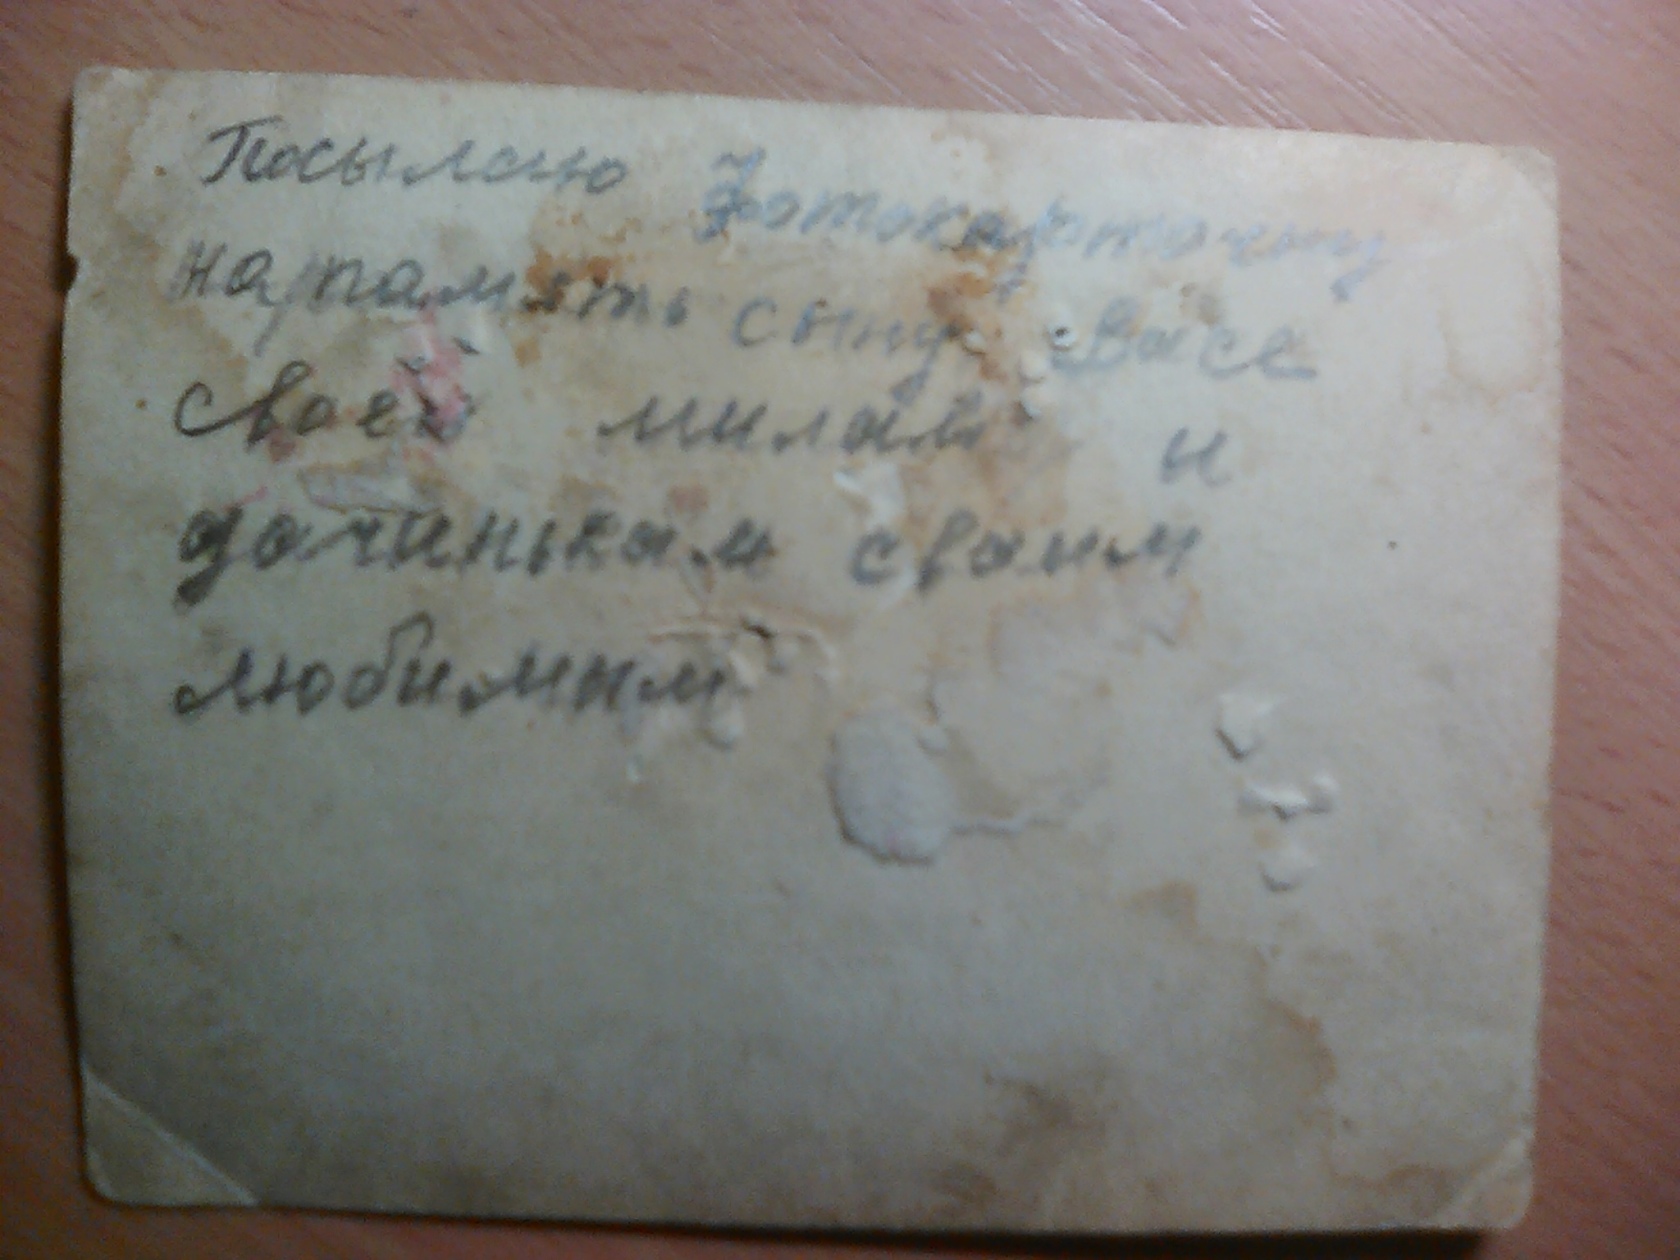 Посылаю фотокарточку
на память сыну Васе
своей милай и
дочинькам своим
любимым